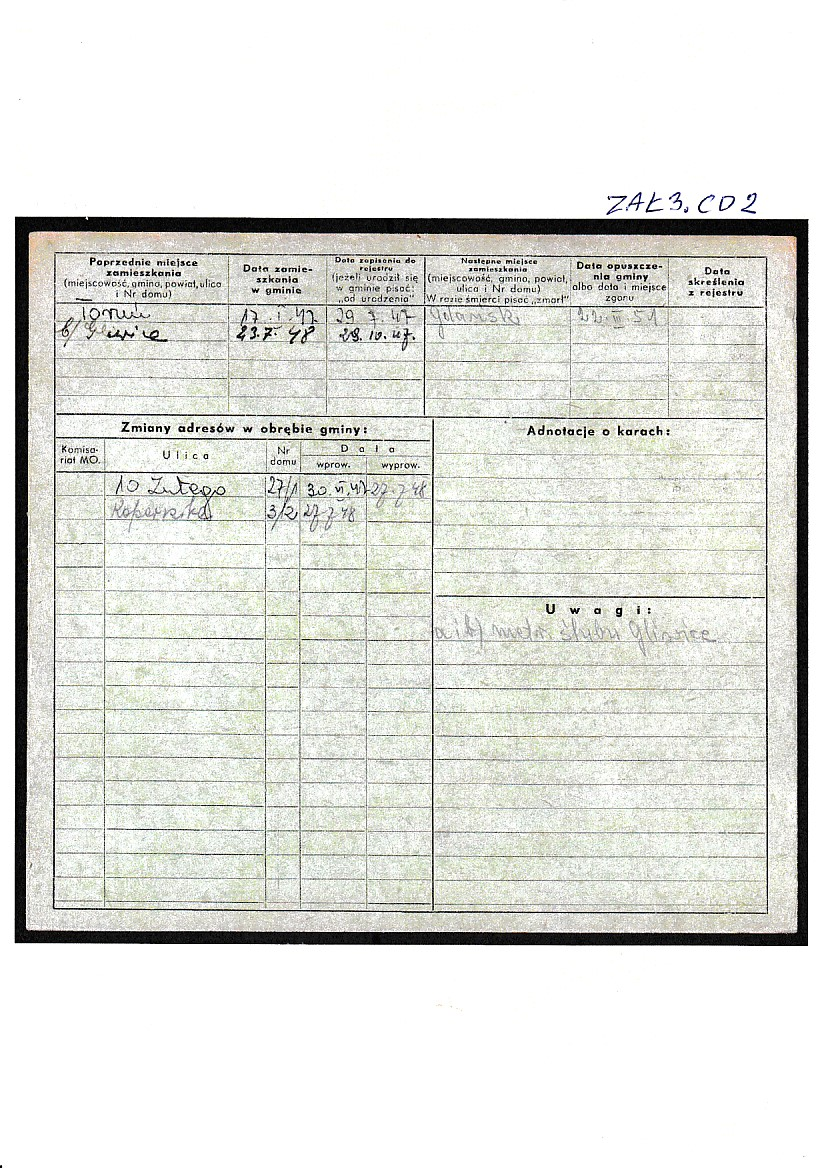 ZAŁ 3. CD 2
Poprzednie miejsce zamieszkania (miejscowość, gmina, powiat, ulica i Nr domu)
Data zamie-szkania w gminie
Data zapisania do rejestru (jeżeli urodził się w gminie pisać: „od urodzenia"
Następne miejsce zamieszkania (miejscowość, gmina, powiat, ulica i Nr domu) W razie śmierci pisać „zmarł"
Data opuszcze-nia gminy albo data i miejsce zgonu
Data skreślenia z rejestru
Toruń 17. I. 47 29 7. 47 Gdańsk 22. III 51
b/ Gliwice 23.7. 48 29. 10. 47.
Zmiany adresów w obrębie gminy:
Adnotacje o karach:
Komisa-riat MO.
Ulica
Nr domu
Data
wprow. wyprow.
10 Lutego 27/1 30. VI. 47 27. 7 48
3/2 27 7 48
Uwagi:
a i b/ metr. ślubu Gliwice